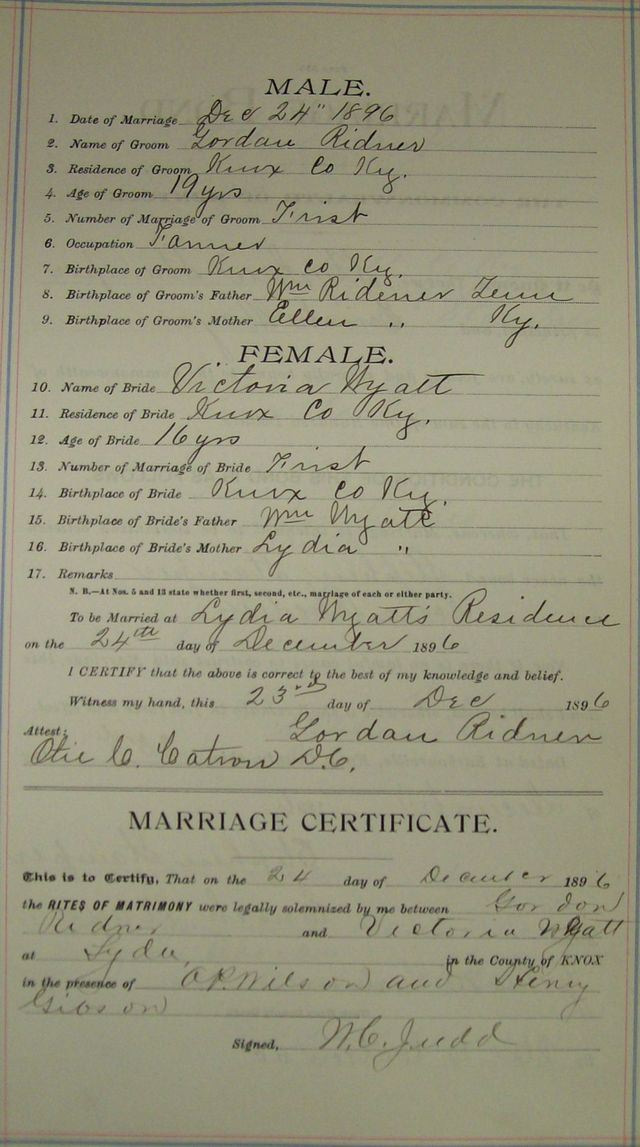 MALE.
1. Date of Marriage Dec 24" 1896
2. Name of Groom Gordan Ridner
3. Residence of Groom Knox Co Ky.
4. Age of Groom 19 yrs
5. Number of Marriage of Groom First
6. Occupation Farmer
7. Birthplace of Groom Knox Co Ky.
8. Birthplace of Groom's Father Wm Ridener Tenn
9. Birthplace of Groom's Mother Ellen " Ky.
FEMALE.
10. Name of Bride Victoria Wyatt
11. Residence of Bride Knox Co Ky.
12. Age of Bride 16 yrs
13. Number of Marriage of Bride First
14. Birthplace of Bride Knox Co Ky.
15. Birthplace of Bride's Father Wm Wyatt
16. Birthplace of Bride's Mother Lydia "
17. Remarks
N. B.—At Nos. 5 and 13 state whether first, second, etc., marriage of each or either party.
To be Married at Lydia Wyatt's Residence
on the 24th day of December 1896
I CERTIFY that the above is correct to the best of my knowledge and belief.
Witness my hand, this 23rd day of Dec 1896
Gordan Ridner
Attest:
Otie C. Catron D.C.
MARRIAGE CERTIFICATE.
This is to Certify, That on the 24 day of December 1896
the RITES OF MATRIMONY were legally solemnized by me between Gordon
Ridner and Victoria Wyatt
at in the County of KNOX
in the presence of O.P. Wilson and Henry
Gibson
Signed, W.C. Judd